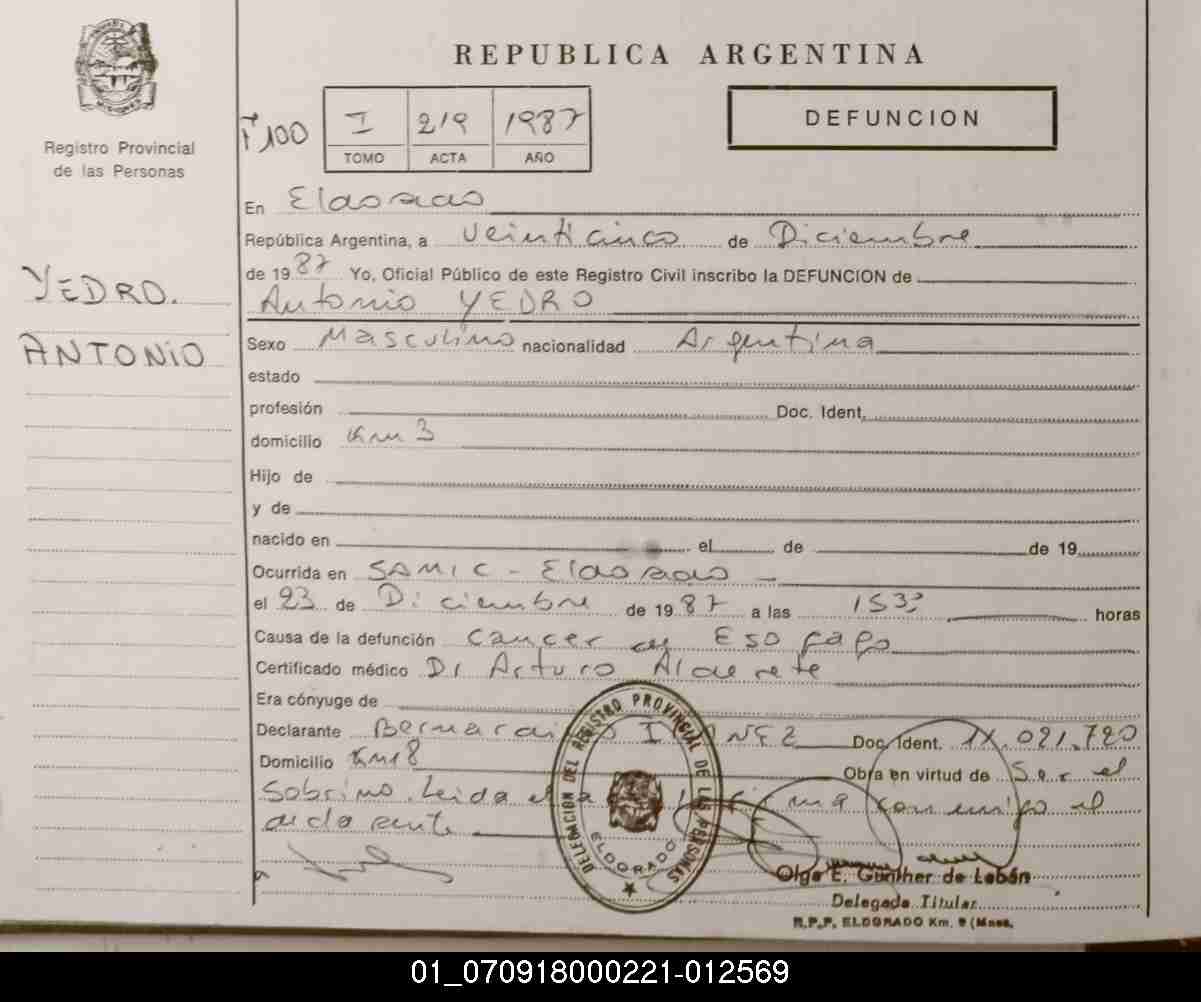 REPUBLICA ARGENTINA
MISIONES
Registro Provincial
de las Personas
Fº 100
I 219 1987
TOMO ACTA AÑO
DEFUNCION
YEDRO.
ANTONIO
En Eldorado
República Argentina, a Veinticinco de Diciembre
de 1987 Yo, Oficial Público de este Registro Civil inscribo la DEFUNCION de
Antonio YEDRO
Sexo Masculino nacionalidad Argentina
estado
profesión Doc. Ident.
domicilio Km 3
Hijo de
y de
nacido en el de de 19
Ocurrida en SAMIC - Eldorado
el 23 de Diciembre de 1987 a las 1530 horas
Causa de la defunción Cancer de Esofago
Certificado médico Dr Arturo Alderete
Era cónyuge de
Declarante Doc. Ident. 11.021.720
Domicilio Km 8 Obra en virtud de Ser el
Sobrino. Leida el firma conmigo el
declarante
DELEGACION DEL REGISTRO PROVINCIAL DE LAS PERSONAS
ELDORADO
Olga E. Günther de Lobán
Delegada Titular
R.P.P. ELDORADO Km. 9 (Mnes.
01_070918000221-012569